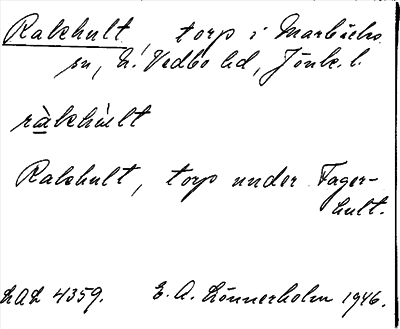 Rakhult torp i Marbäcks
sn, N. Vedbo hd, Jönk. l.
ràkhùlt
Rakhult, torp under Fager-
hult.
LAL 4359. E. A. Lönnerholm 1946.